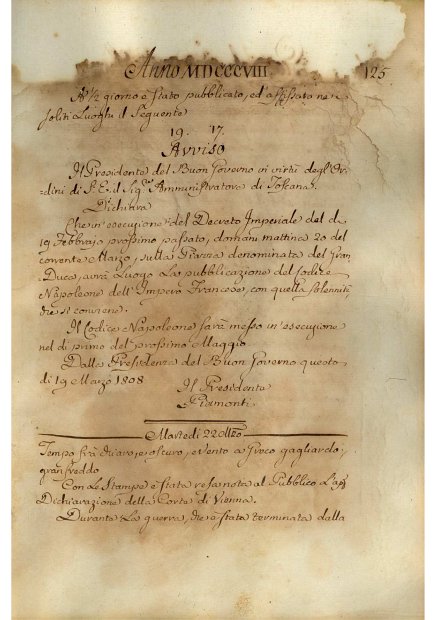 Anno MDCCCVIII 125
A 1/2 giorno è stato pubblicato, ed affissato ne
soliti Luoghi il seguente
19. 17.
Avviso
Il Presidente del Buon Governo in virtù degl'Or=
=dini di S. E. il Sig.e Amministratore di Toscana.
Dichiara
Che in esecuzione del Decreto Imperiale del dì
19 Febbrajo prossimo passato, domani mattina 20 del
corrente Marzo, sulla Piazza denominata del Gran
Duca, avrà Luogo La pubblicazione del Codice
Napoleone dell'Impero Francese, con quella solennità,
che si conviene.
Il Codice Napoleone sarà messo in esecuzione
nel dì primo del prossimo Maggio.
Dalla Presidenza del Buon Governo questo
dì 19 Marzo 1808
Il Presidente
Piamonti.
Martedì 22
Tempo frà chiaro, e oscuro, e Vento a Greco gagliardo,
gran freddo
Con Le Stampe è stata resa nota al Pubblico L'app.
Dichiarazione della Corte di Vienna.
Durante La guerra, che è stata terminata dalla